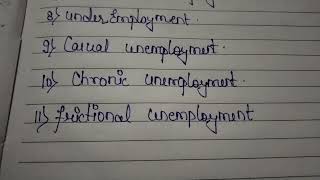 8) under Employment.
9) Casual unemployment.
10) Chronic unemployment.
11) frictional unemployment